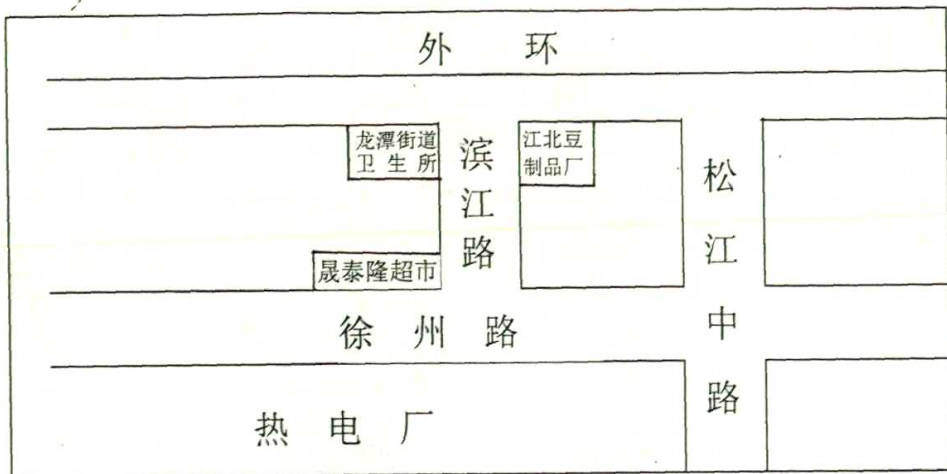 外环
龙潭街道
卫生所
滨江路
江北豆
制品厂
松江中路
晟泰隆超市
徐州路
热电厂